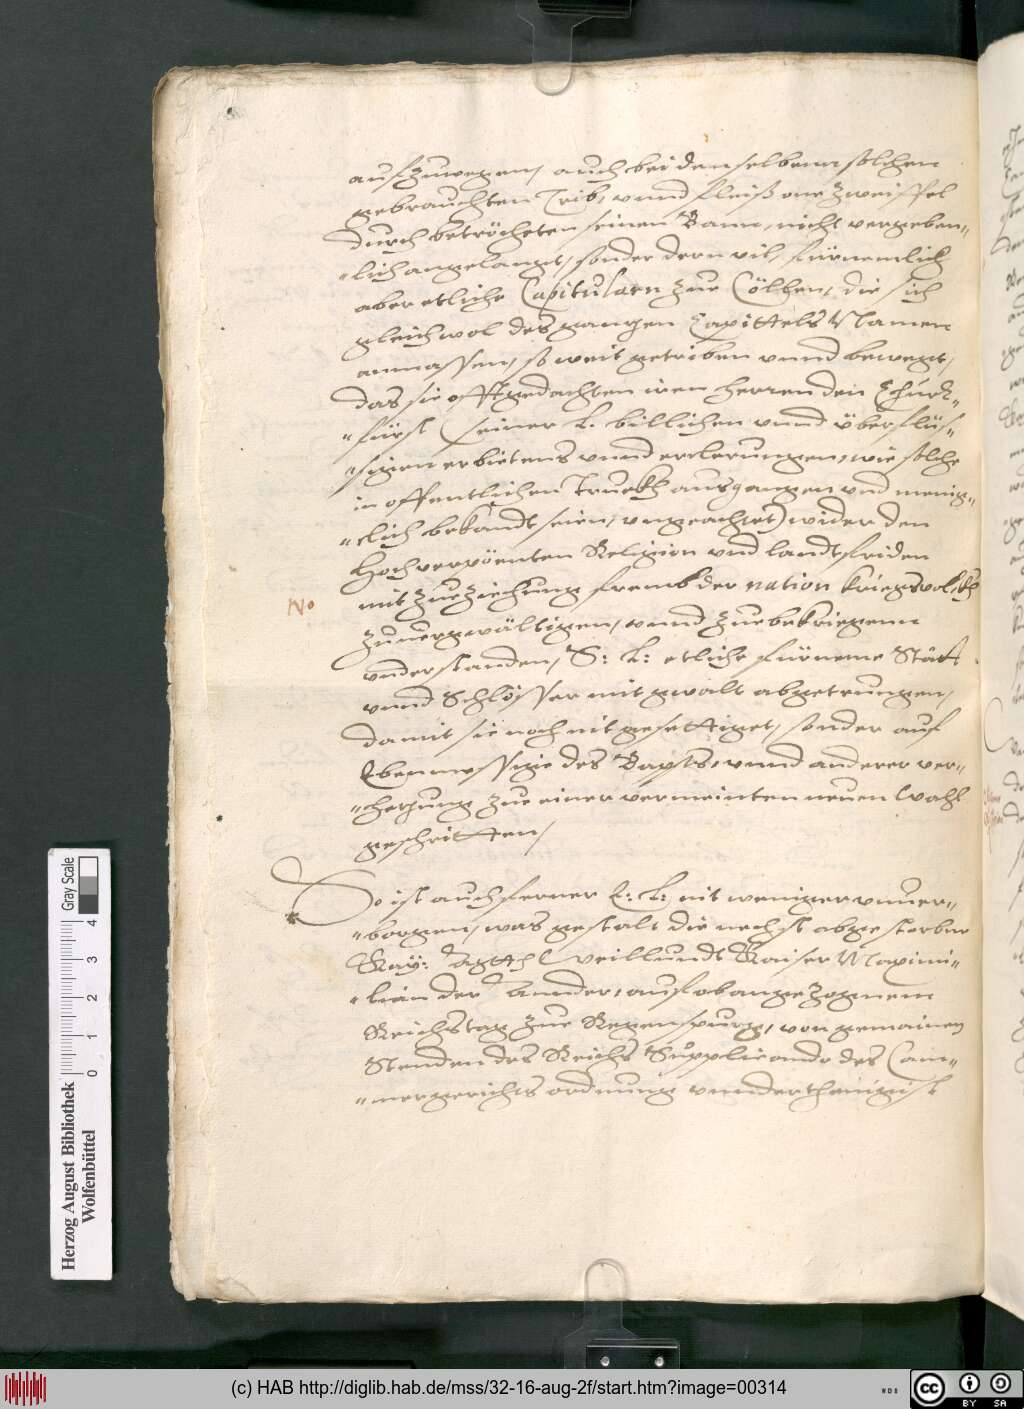 aufzuwegen, auch bei denselbenn solchen
gebrauchten Trib, vnnd fleiß one Zweiffel
durch betröcheten seinen Bann, nicht vergeben„
„lich angelangt, sonder dern vil, fürnemlich
aber etliche Capitularn zue Cöllen, die sich
gleichwol des gantzen Capittels Namen
anmassen, so weit getriben vnnd bewegt,
das sie offtgedachten iren herren den Churf„
„fürst (seiner L. billichen vnnd überflüs„
„sigen erbietens vnnd erclerungen, wie solche
in offentlichen Truckh ausgangen vnd menig„
„clich bekandt seien, vngeachtet) wider den
Hochverpöenten Religion vnd landtfriden
mit Zueziehung frembder nation kriegsvolckh
No
zuuergwältigen, vnnd zuebekriegenn
vnderstanden, S: L: etliche fürneme Stätt
vnnd Schlösser mit gwalt abgetrungen,
damit sie noch nit gesettiget, sonder auf
Ebenmessige des Bapsts, vnnd anderer ver„
„hetzung zue einer vermeinten neuen Wahl
geschritten,
So ist auch ferner E: L: nit weniger vnuer„
„borgen, was gestalt die nechst abgestorbne
Kay: Mtt Weillundt Kaiser Maximi„
„lian der Annder, auf obangezognem
Reichstag zue Regenspurg, von gemainen
Stenden des Reichs Supplicando des Cam„
„mergerichts ordnung vnnderthenigist
Herzog August Bibliothek
Wolfenbüttel
0 1 2 3 4
Gray Scale
(c) HAB http://diglib.hab.de/mss/32-16-aug-2f/start.htm?image=00314
WDB
cc BY SA